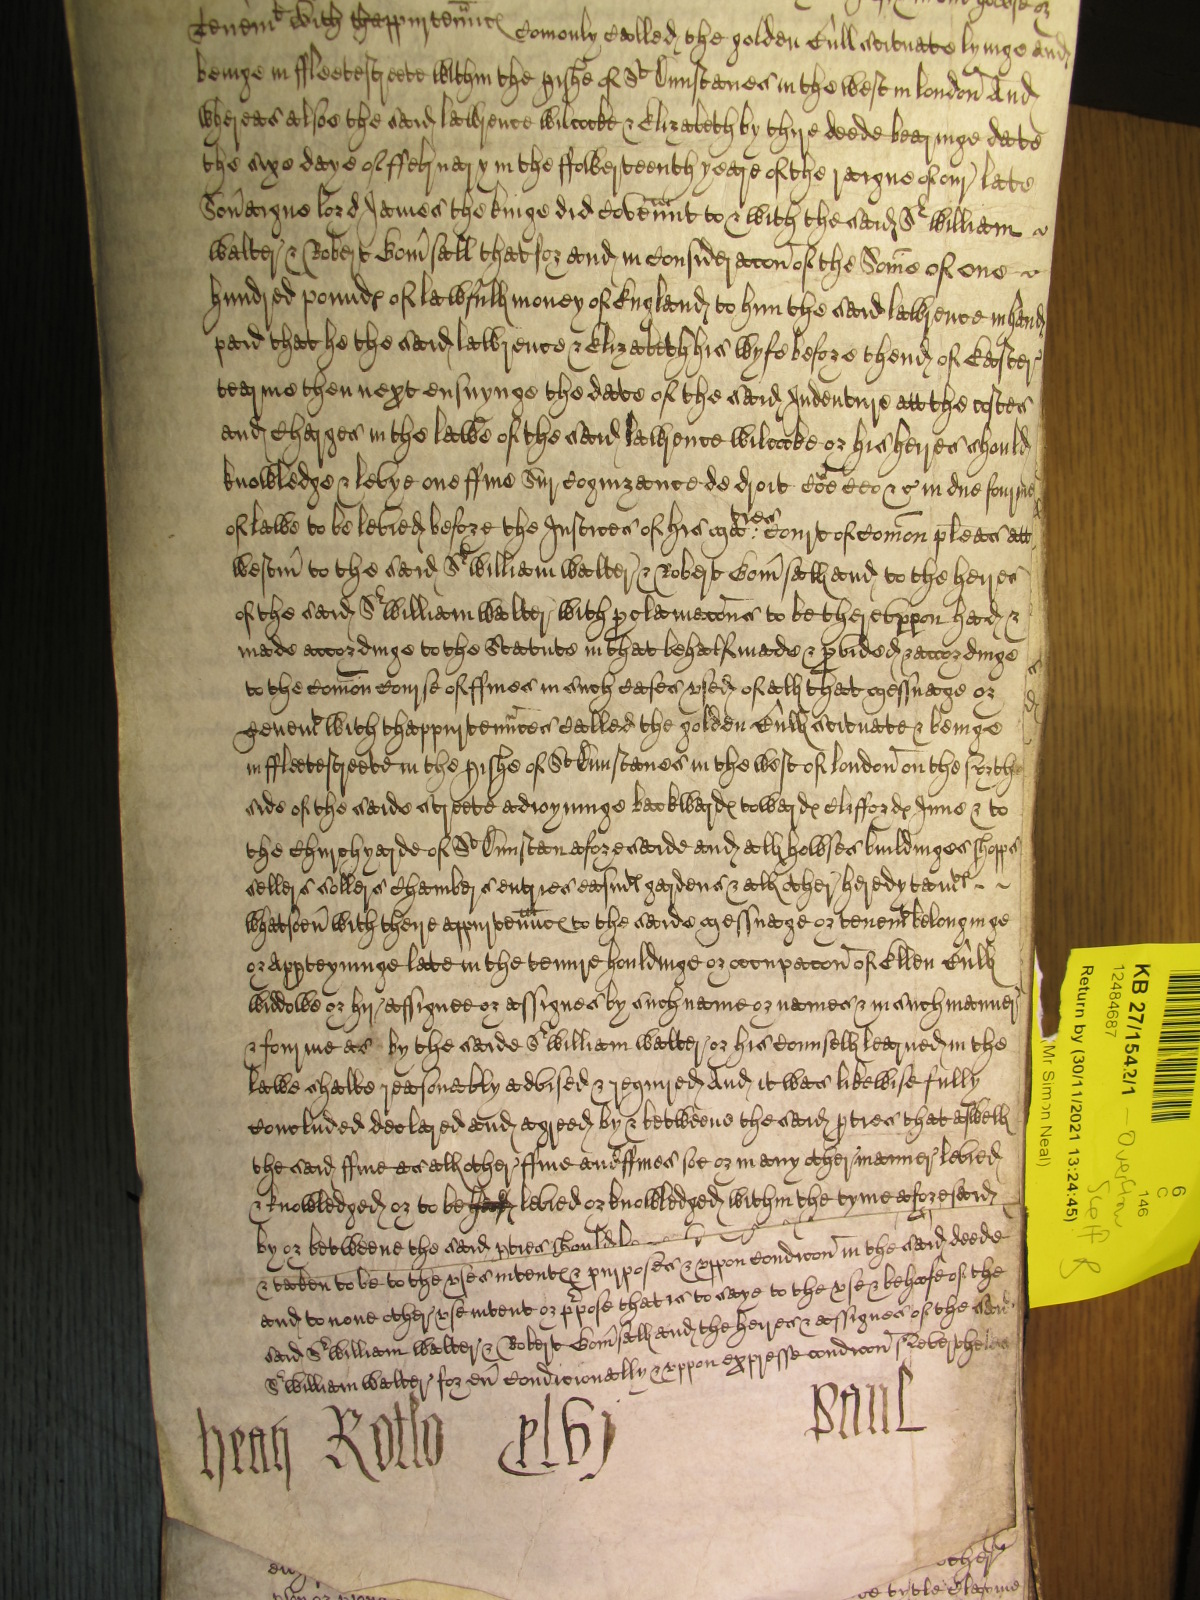 tenemt with thappurtenncs Comonly Called the golden Cull scituate lyinge and
beinge in ffleetestreete within the pishe of St Dunstanes in the west in london And
whereas alsoe the said lawrence Wilcocke & Elizabeth by there deede bearinge date
the sixe daye of ffebruary in the ffowerteenth yeare of the raigne of our late
Soũaigne lord James the kinge did Covennt to & with the said Sr William
Walter & Robert Bom̃sall that for and in Consideracon of the Some of one
hundred poundes of lawfull money of England to him the said lawrence in hand
paid that he the said lawrence & Elizabeth his wyfe before thend of Easter
tearme then next ensuynge the date of the said Indenture att the costes
and Charges in the lawe of the said lawrence Wilcocke or his heires should
knowledge & levye one ffine Sur Cognizance de droit Coe Ceo &c in due fourme
of lawe to be levied before the Justices of his maties Court of Comon pleas att
westm̃ to the said Sr William Walter & Robert Bom̃sall and to the heires
of the said Sr William Walter with pclamacons to be thereuppon had &
made accordinge to the Statute in that behalf made & pvided & accordinge
to the Comon Course of ffines in such Cases vsed of all that messuage or
tenemt with thappurtennces Called the golden Cull scituate & beinge
in ffleetestreete in the pishe of St Dunstanes in the west of london on the North
side of the saide streete adioyninge backwardes towardes Cliffordes Inne & to
the Churchyarde of St Dunstan aforesaide and all howses buildinges shopps
sellers sollers Chambers entries easmts gardens & all other heredytamts
whatsoeũ with there appurtenncs to the saide messuage or tenemt belonginge
or appteyninge late in the tenure houldinge or occupacon of Ellen Cull
widdowe or hir assignee or assignes by such name or names & in such manner
& fourme as by the saide Sr William Walter or his Counsell learned in the
lawe shalbe reasonably advised & required And it was likewise fully
Concluded declared and agreed by & betweene the said pties that aswell
the said ffine as all other ffine and ffines soe or in any other manner levied
& knowledged or to be had levied or knowledged within the tyme aforesaid
by or betweene the said pties should be
& taken to be to the vses intents & purposes & vppon Condicon in the said deede
and to none other vse intent or ppose that is to saye to the vse & behoofe of the
said Sr William Walter & Robert Bom̃sall and the heires & assignes of the said
Sr William Walter for eũ Condicionally & vppon expresse condicon
Rotlo
other
tytle Clayme
KB 27/1542/1
12484687
Return by (30/11/2021 13:24:45)
Mr Simon Neal)
146
C
6